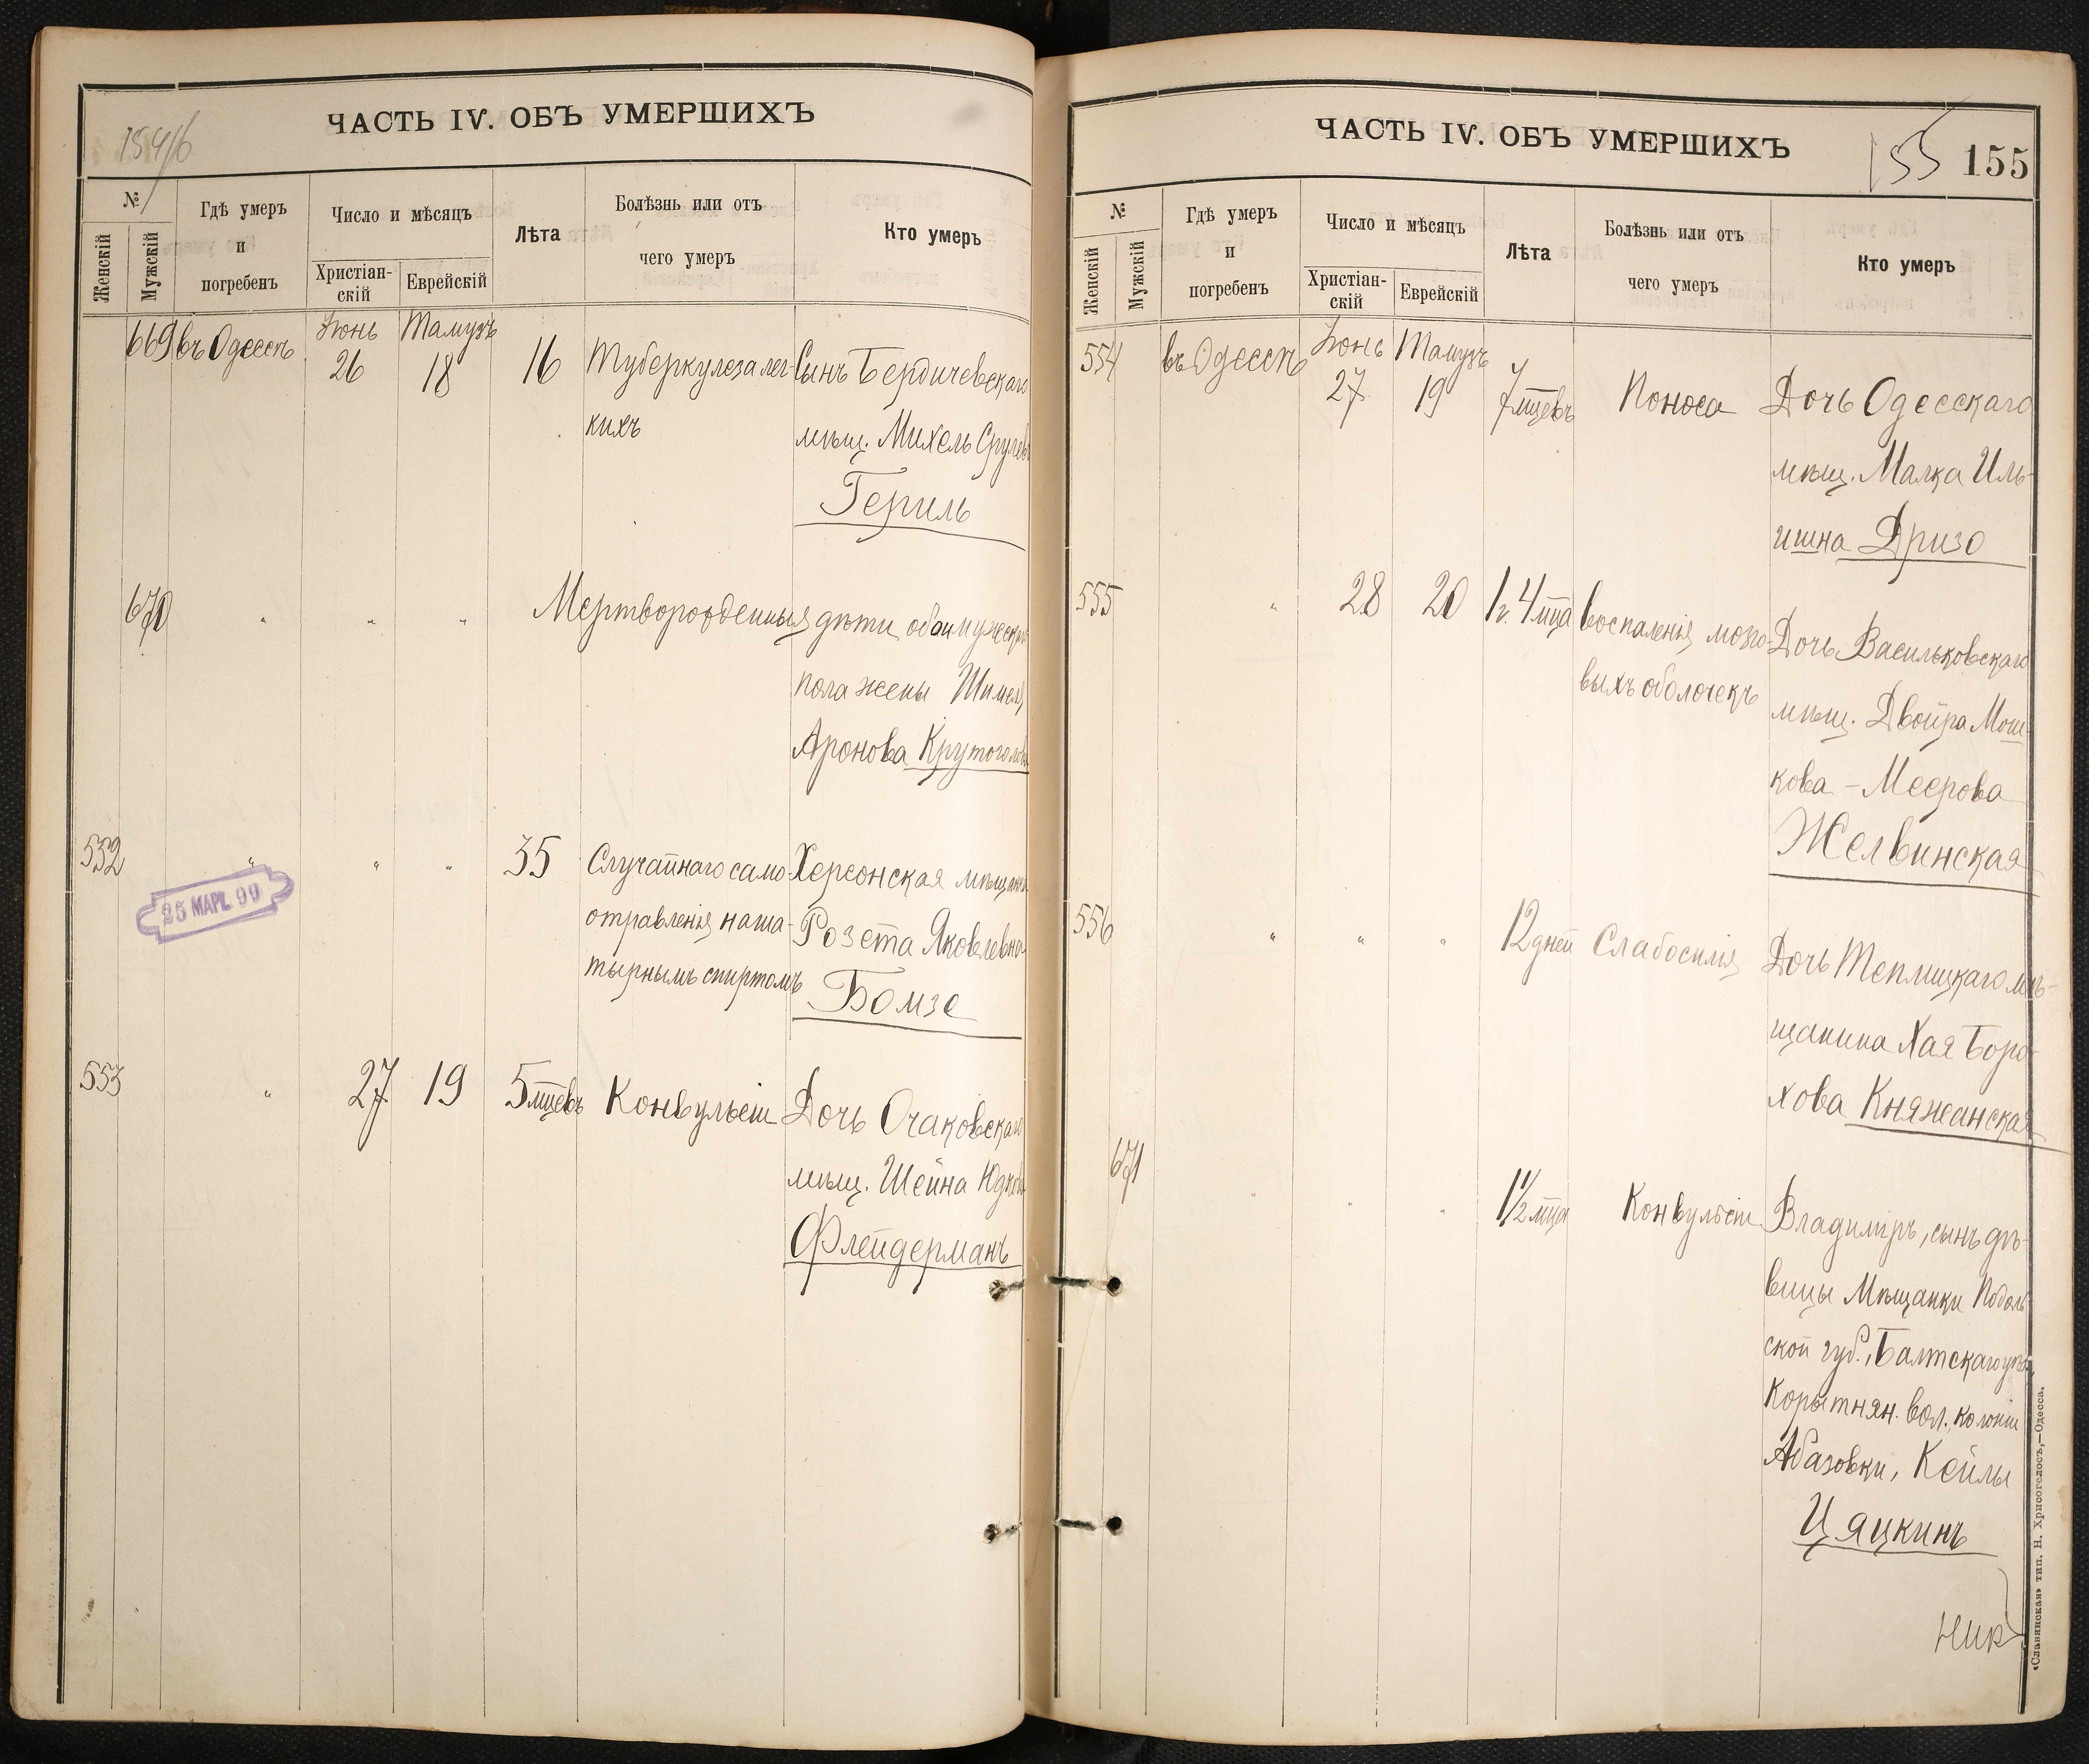 ЧАСТЬ IV. ОБЪ УМЕРШИХЪ
154/б
№
Женскій
Мужскій
Гдѣ умеръ
и
погребенъ
Число и мѣсяцъ
Христіан-
скій
Еврейскій
Лѣта
Болѣзнь или отъ
чего умеръ
Кто умеръ
669 въ Одессѣ
Іюнь
26
Тамузъ
18
16
Туберкулеза лег-
кихъ
Сынъ Бердичевскаго
мѣщ. Михель Срулевъ
Гериль
670 " " "
Мертворожденныя дѣти оба мужескаго
пола жены Шимеля
Аронова Крутоголова
552 " " "
35
Случайнаго само-
отравленія наша-
тырнымъ спиртомъ
Херсонская мѣщанка
Розета Яковлевна
Бомзе
25 МАРТ. 99
553 "
27
19
5 мцевъ
Конвульсіи
Дочь Очаковскаго
мѣщ. Шейна Юдкова
Флейдерманъ
ЧАСТЬ IV. ОБЪ УМЕРШИХЪ
155
155
№
Женскій
Мужскій
Гдѣ умеръ
и
погребенъ
Число и мѣсяцъ
Христіан-
скій
Еврейскій
Лѣта
Болѣзнь или отъ
чего умеръ
Кто умеръ
554
въ Одессѣ
Іюнь
27
Тамузъ
19
7 мцевъ
Поноса
Дочь Одесскаго
мѣщ. Малка Иль-
ишна Дризо
555 "
28
20
1 г. 4 мца
воспаленія мозго-
выхъ оболочекъ
Дочь Васильковскаго
мѣщ. Двойра Мош-
кова - Меерова
Желвинская
556 " " "
12 дней
Слабосилія
Дочь Теплицкаго мѣ-
щанина Хая Боро-
хова Княжанская
671 " " "
1 1/2 мца
Конвульсіи
Владиміръ, сынъ дѣ-
вицы Мѣщанки Подоль-
ской губ., Балтскаго уѣз.
Корытнян. вол., колоніи
Абазовки, Кейлы
Цяцкинъ
Ник
«Славянская» тип. Н. Хрисогелосъ,—Одесса.